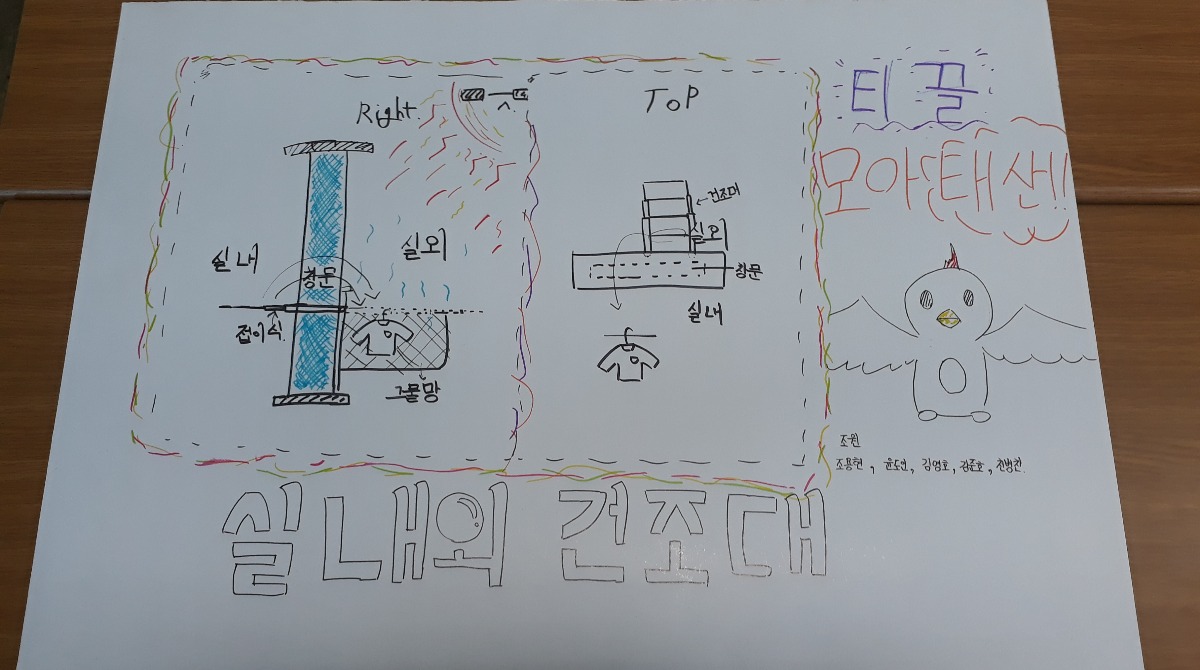 Right
TOP
티끌
모아 태산!!
건조대
실외
실내
창문
실외
접이식
창문
실내
그물망
조원
조용현, 윤도인, 김영호, 김준호,
실내외 건조대